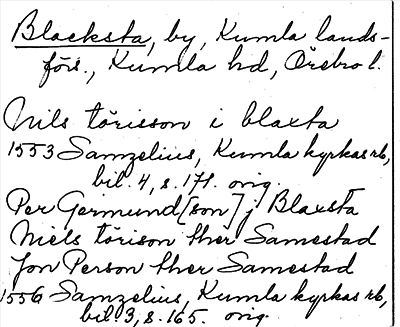 Blacksta, by, Kumla lands-
förs., Kumla hd, Örebro l.
Nils törisson i blaxta
1553 Samzelius, Kumla kyrkas rb,
bil. 4, s. 171. orig.
Per Germund[son] j Blaxsta
Niels törison ther Samestad
Jon Person ther Samestad
1556 Samzelius, Kumla kyrkas rb,
bil. 3, s. 165. orig.